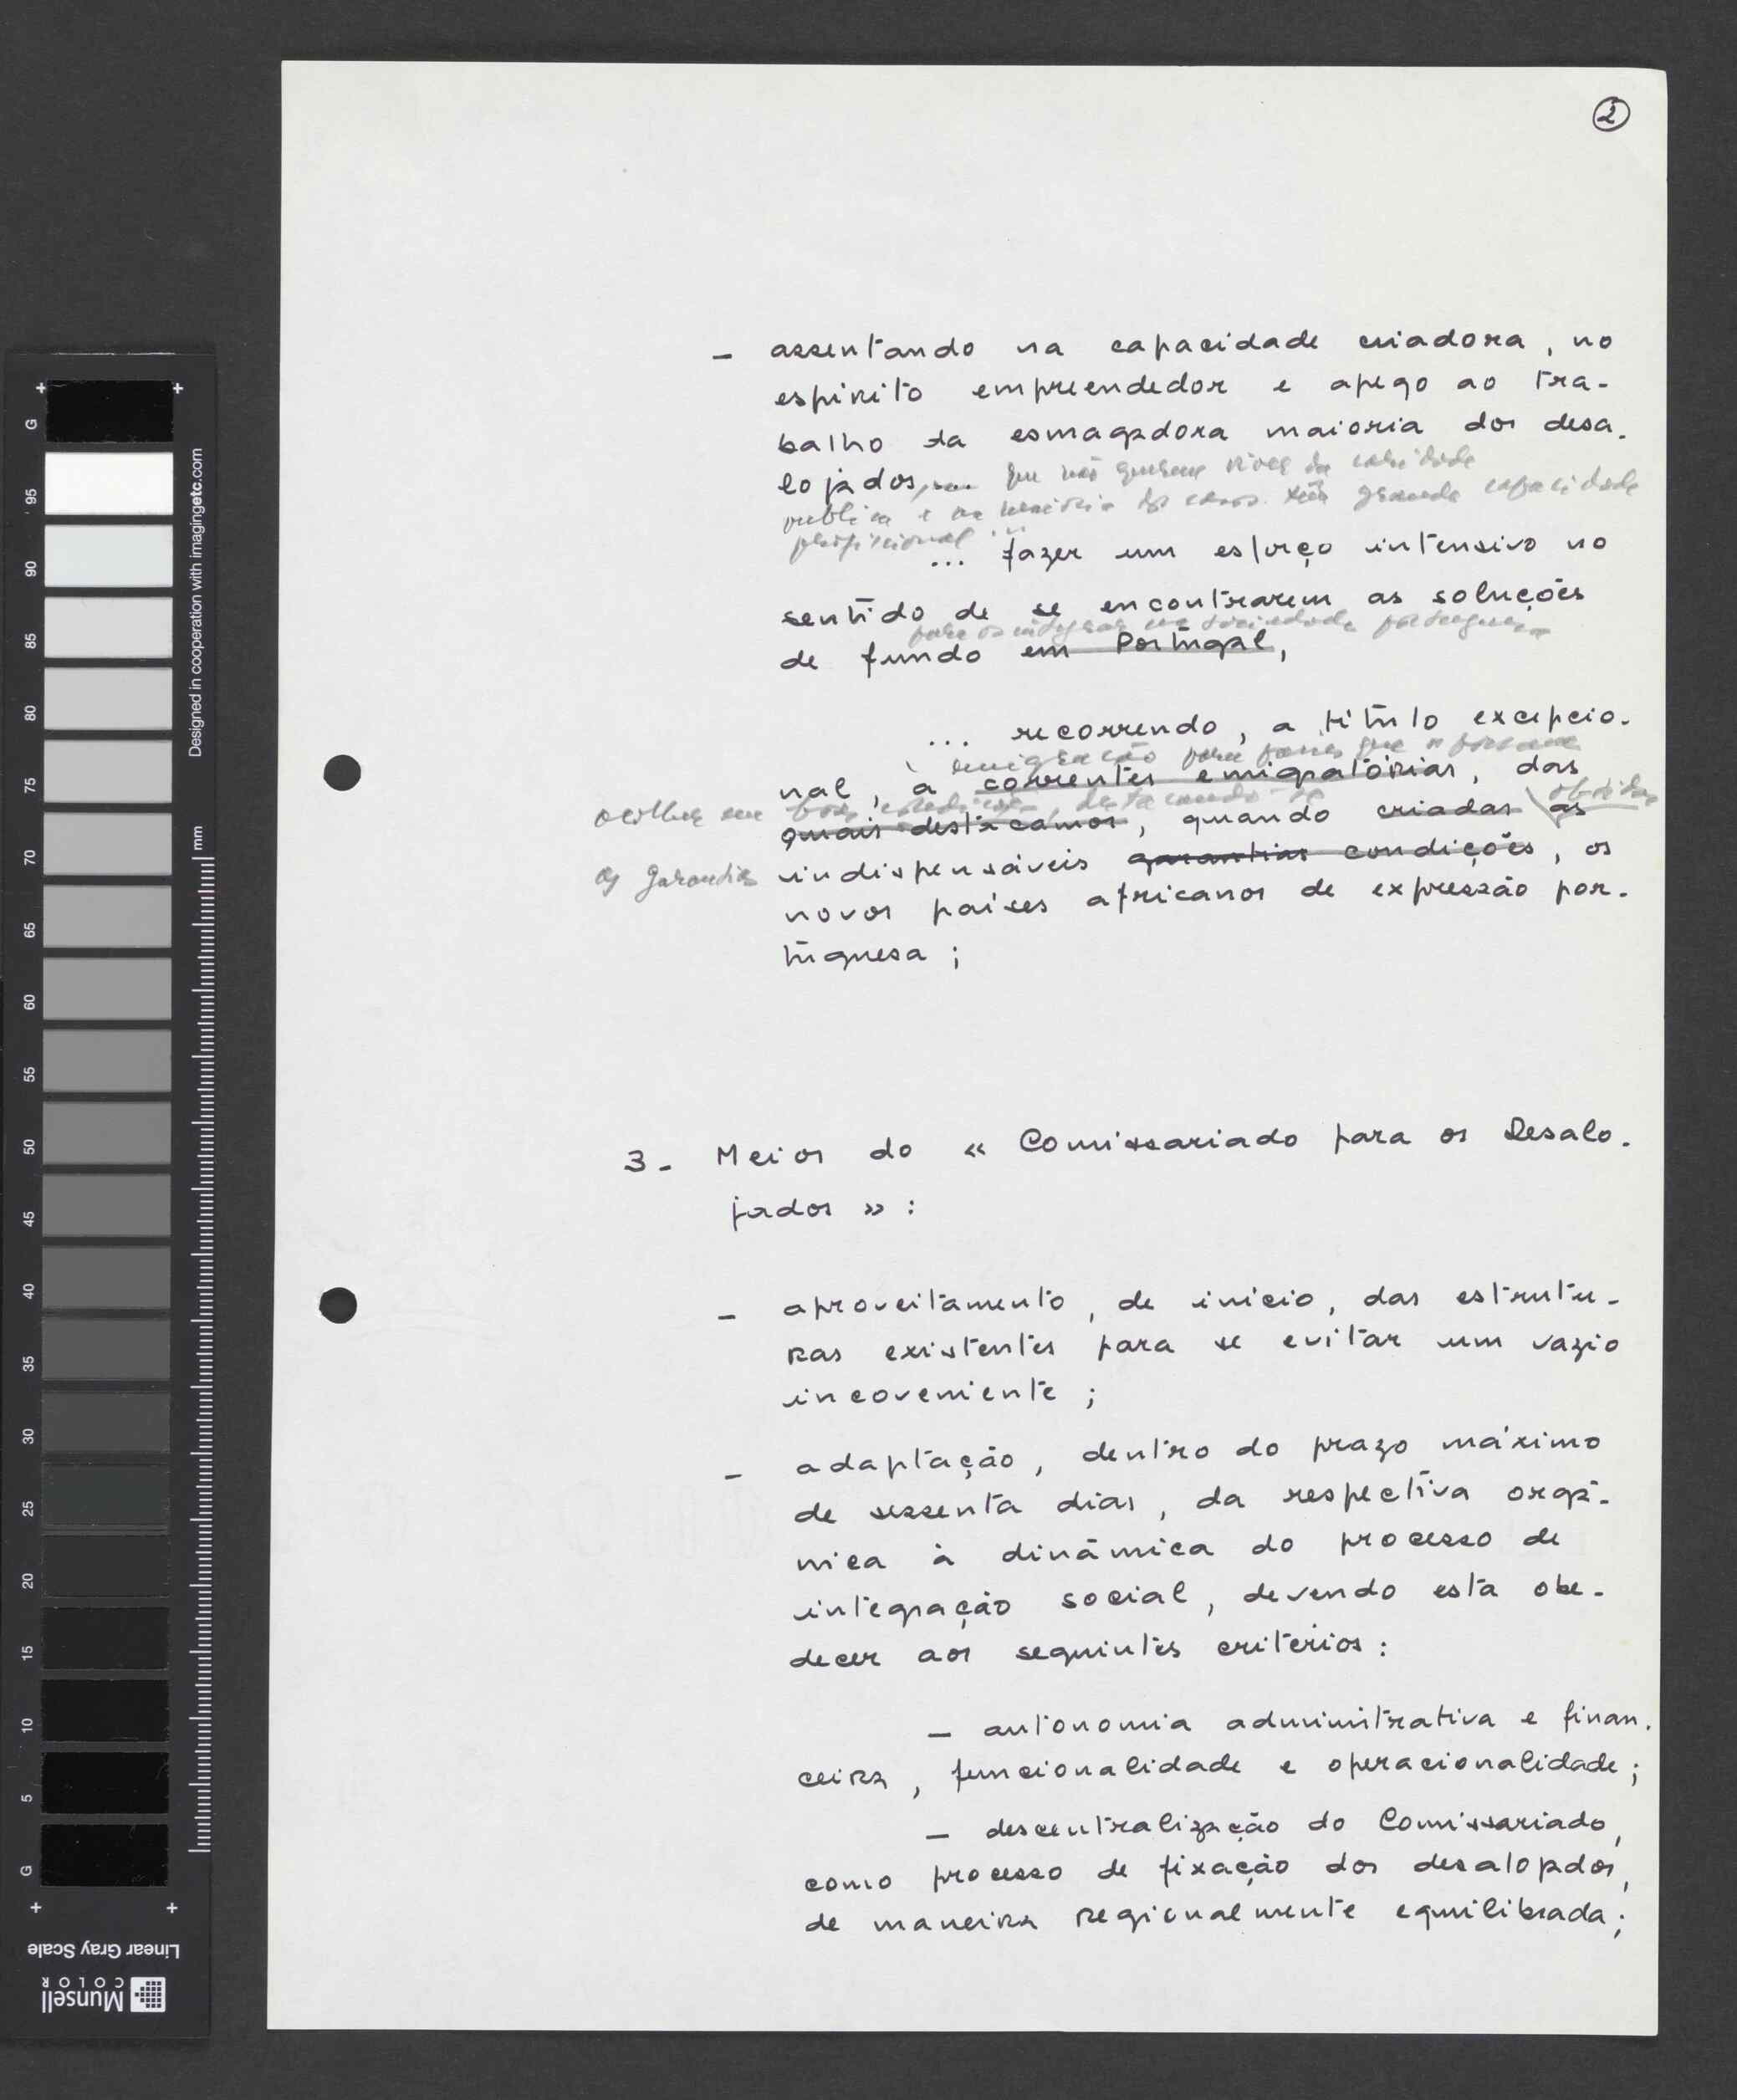 2
- assentando na capacidade criadora, no
espirito empreendedor e apego ao tra-
balho da esmagadora maioria dos desa-
lojados, ... que não querem viver da caridade
publica e na maioria dos casos têm grande capacidade
profissional ...
... fazer um esforço intensivo no
sentido de se encontrarem as soluções
para os integrar na sociedade portuguesa
de fundo em Portugal,
... recorrendo, a título excepcio-
emigração para países que os possam
nal, a correntes emigratórias, das
acolher em boas condições, destacando-se
quais destacamos, quando criadas as obtidas
as garantias indispensáveis garantias condições, os
novos países africanos de expressão por-
tuguesa;
3- Meios do « Comissariado para os Desalo-
jados » :
- aproveitamento, de inicio, das estrutu-
ras existentes para se evitar um vazio
incoveniente ;
- adaptação, dentro do prazo máximo
de sessenta dias, da respectiva orgâ-
nica à dinâmica do processo de
integração social, devendo esta obe-
decer aos seguintes critérios :
- autonomia administrativa e finan-
ceira, funcionalidade e operacionalidade ;
- descentralização do Comissariado,
como processo de fixação dos desalojados,
de maneira regionalmente equilibrada ;
+ +
G
95
90
85
80
75
70
65
60
55
50
45
40
35
30
25
20
15
10
5
G
+ +
Designed in cooperation with imagingetc.com
mm
Linear Gray Scale
Munsell
COLOR